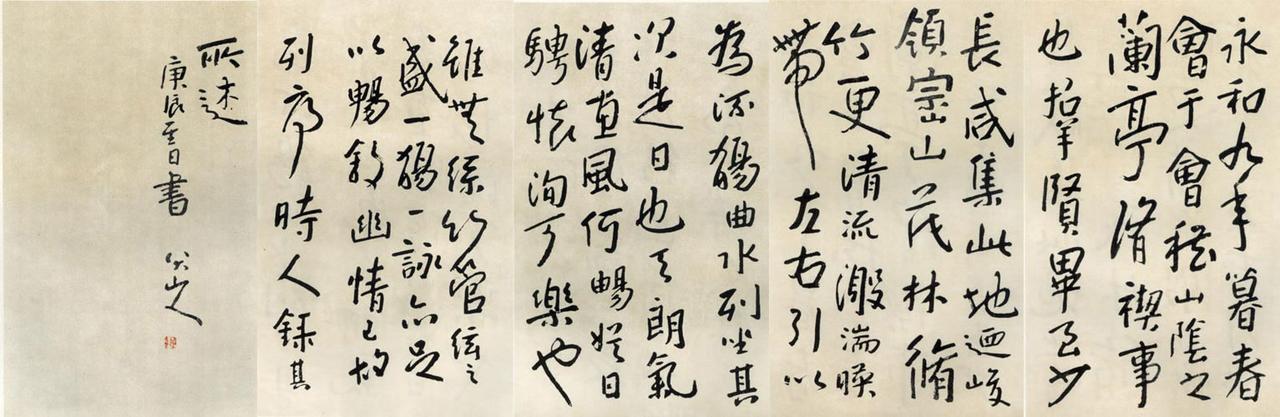 永和九年暮春
會于會稽山陰之
蘭亭脩禊事
也群賢畢至少
長咸集此地迺峻
領崇山茂林脩
竹更清流激湍暎
帶左右引以
為流觴曲水列坐其
次是日也天朗氣
清惠風何暢娛目
騁懷洵可樂也
雖無絲竹管絃之
盛一觴一詠亦足
以暢敘幽情已故
列序時人錄其
所述
庚辰至日書 八大山人